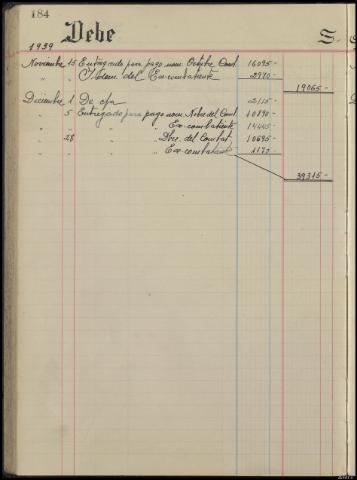 184
Debe S.
1939
Noviembre 15 Entregado para pago nom. Octubre Comt. 16095-
" " Idem del Ex-combatiente 2970-
19065-
Diciembre 1 De 2115-
" 5 Entregado para pago nom. Nobre. del Comt. 10890-
" " " Ex-combatiente 14445-
" 28 " Dbre. del Combat. 10695-
" " " Ex-combatiente 1170-
39315-